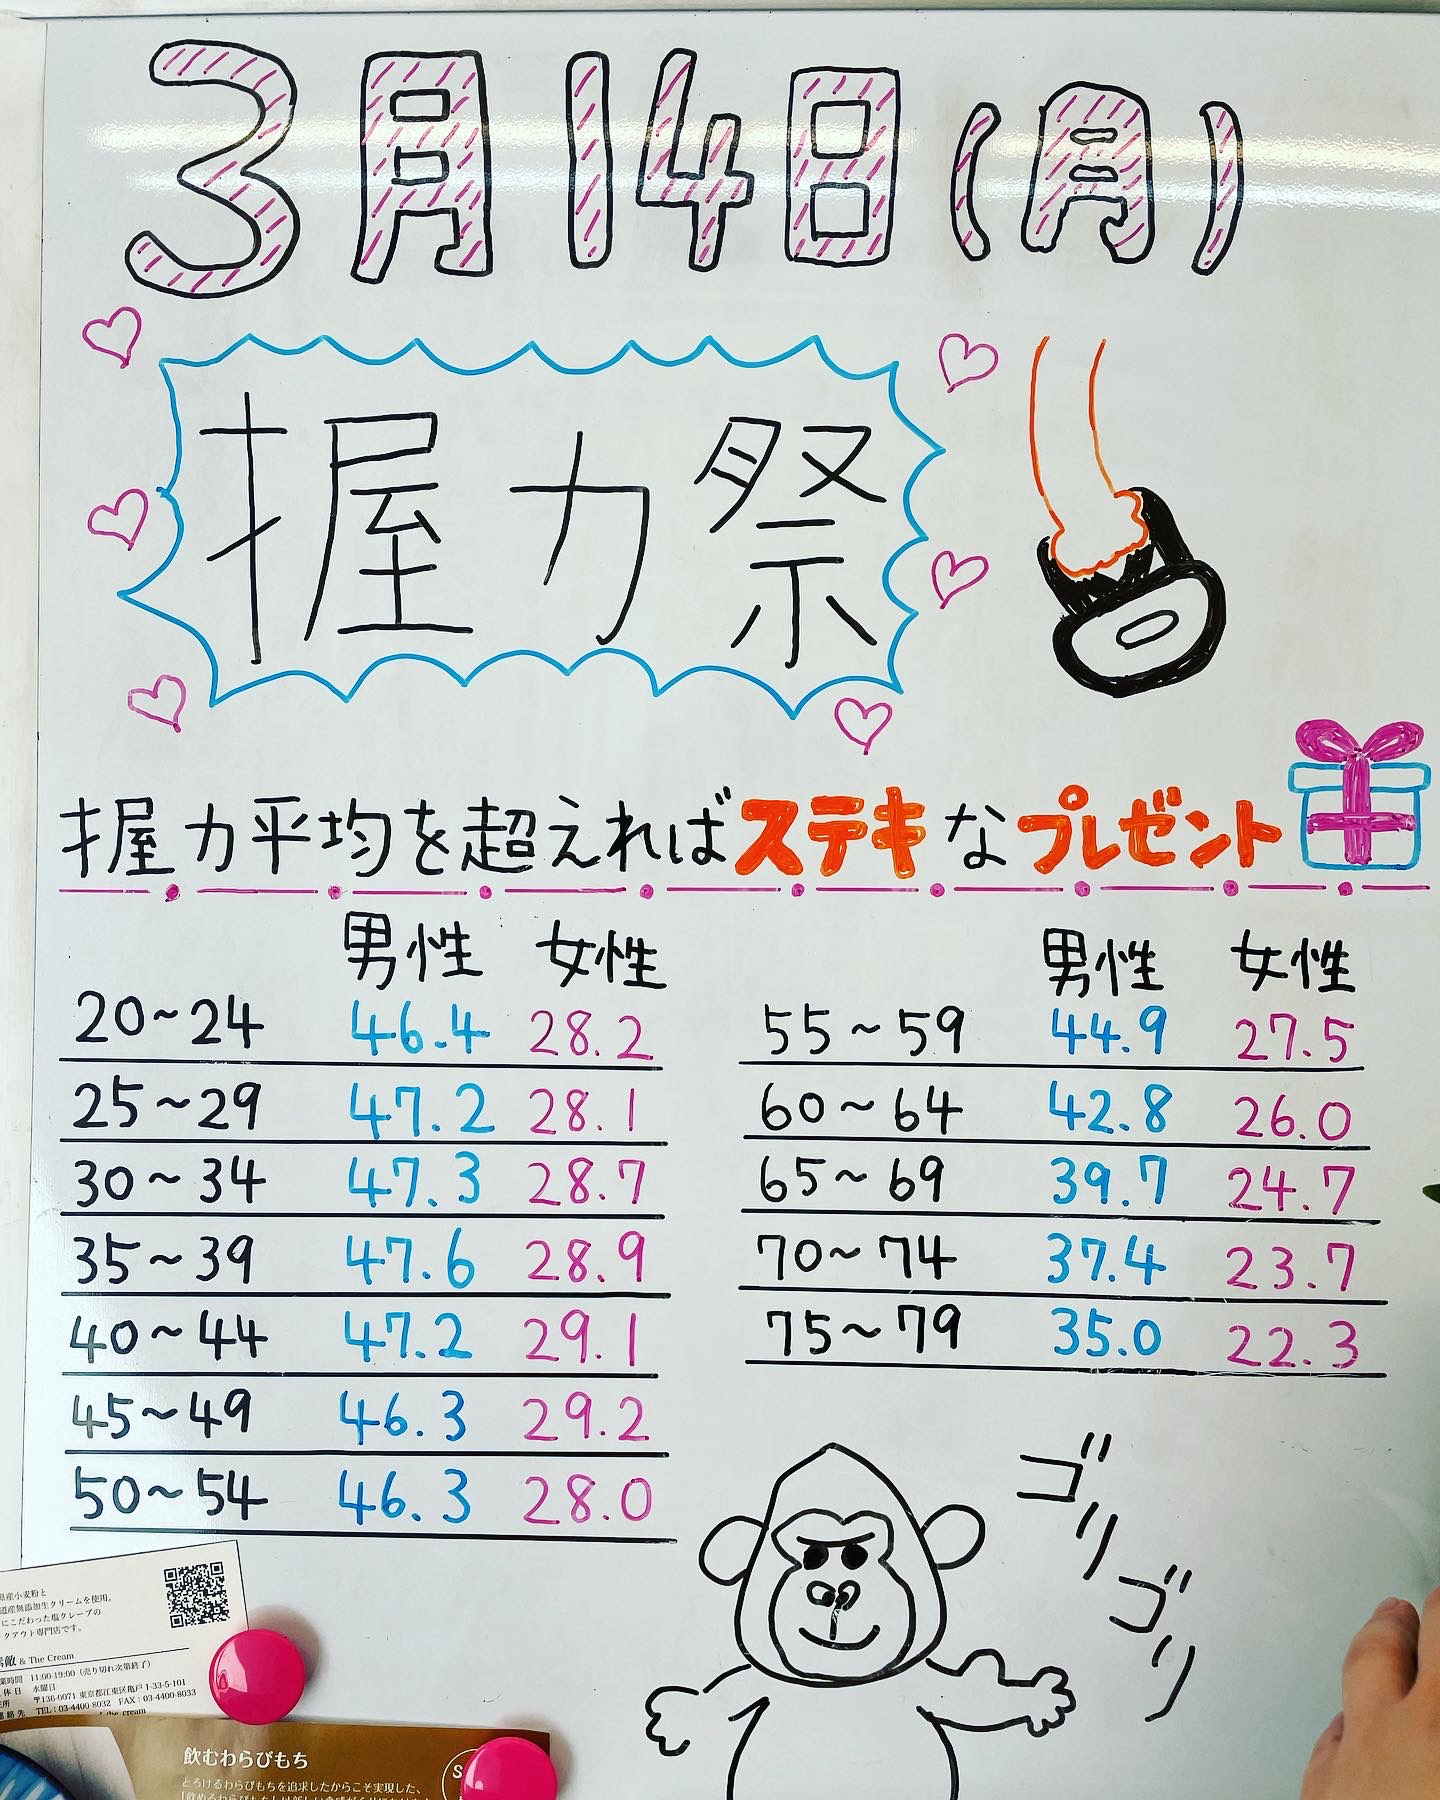 3月14日(月)
握力祭
握力平均を超えればステキなプレゼント
男性 女性
20~24 46.4 28.2
25~29 47.2 28.1
30~34 47.3 28.7
35~39 47.6 28.9
40~44 47.2 29.1
45~49 46.3 29.2
50~54 46.3 28.0
男性 女性
55~59 44.9 27.5
60~64 42.8 26.0
65~69 39.7 24.7
70~74 37.4 23.7
75~79 35.0 22.3
ゴリゴリ
県産小麦粉と
道産無添加生クリームを使用。
にこだわった塩クレープの
クアウト専門店です。
& The Cream
業時間 11:00-19:00(売り切れ次第終了)
休日 水曜日
所 〒136-0071 東京都江東区亀戸1-33-5-101
絡先 TEL:03-4400-8032 FAX:03-4400-8033
the cream
飲むわらびもち
とろけるわらびもちを追求したからこそ実現した、